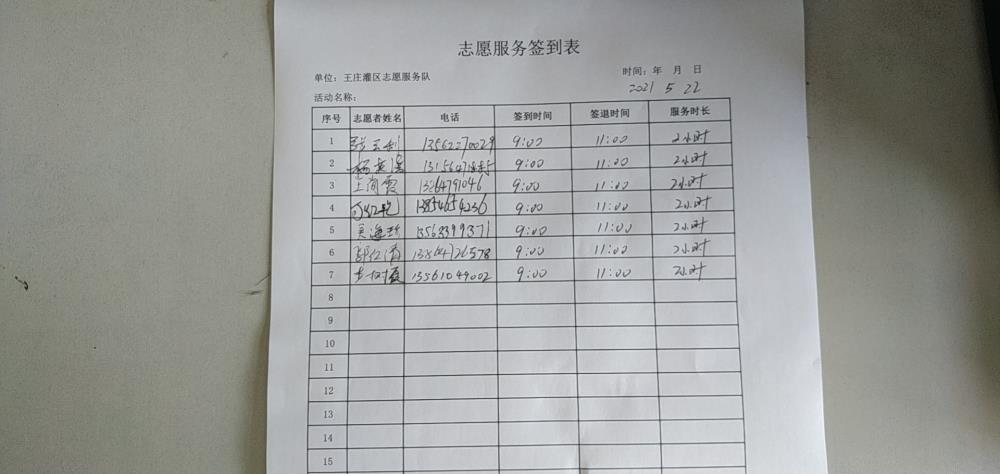 志愿服务签到表
单位：王庄灌区志愿服务队
时间：年 月 日
2021 5 22
活动名称：
序号 志愿者姓名 电话 签到时间 签退时间 服务时长
1 13562270029 9:00 11:00 2小时
2 9:00 11:00 2小时
3 13264791046 9:00 11:00 2小时
4 13854654236 9:00 11:00 2小时
5 13563399371 9:00 11:00 2小时
6 13864726578 9:00 11:00 2小时
7 13561049002 9:00 11:00 2小时
8
9
10
11
12
13
14
15